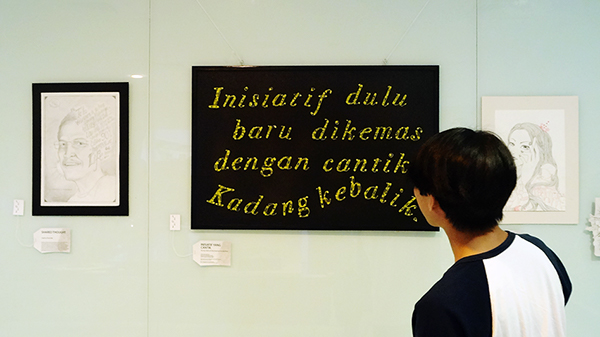 Inisiatif dulu
baru dikemas
dengan cantik
Kadang kebalik.